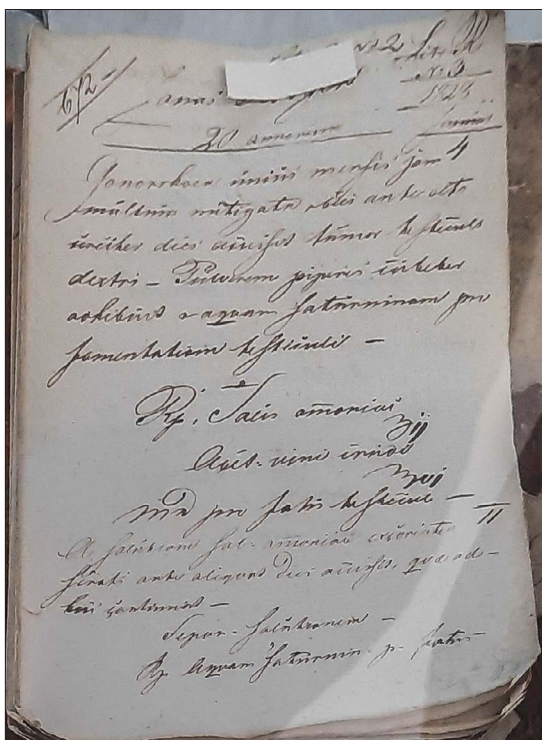 672
Lit. R
No 3
1828
20 annorum
Gonorrhoea unius mensis jam 4
multum mitigata ante octo
circiter dies accessit tumor testiculi
dextri – Pulverem piperis cubebar
adhibuit aquam saturninam pro
fomentatione testiculi –
Rp. Salis amoniaci
ʒii
Acet. vini crudi
ʒvi
pro fotu testicul –
A solutione sal. amoniaci excoriatio 11
scroti ante aliquot dies accessit, quae ad-
huc continuat –
Sepon. solutionem –
Rp Aquam saturnin. p. fotu –